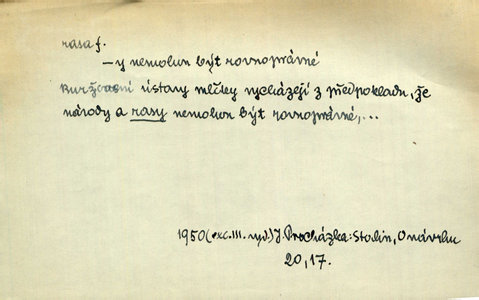 rasa f.
—y nemohou být rovnoprávné
Buržoasní ústavy mlčky vycházejí z předpokladu, že
národy a rasy nemohou být rovnoprávné,...
1950 (exc. III. vyd.) J. Procházka: Stalin, O návrhu
20, 17.